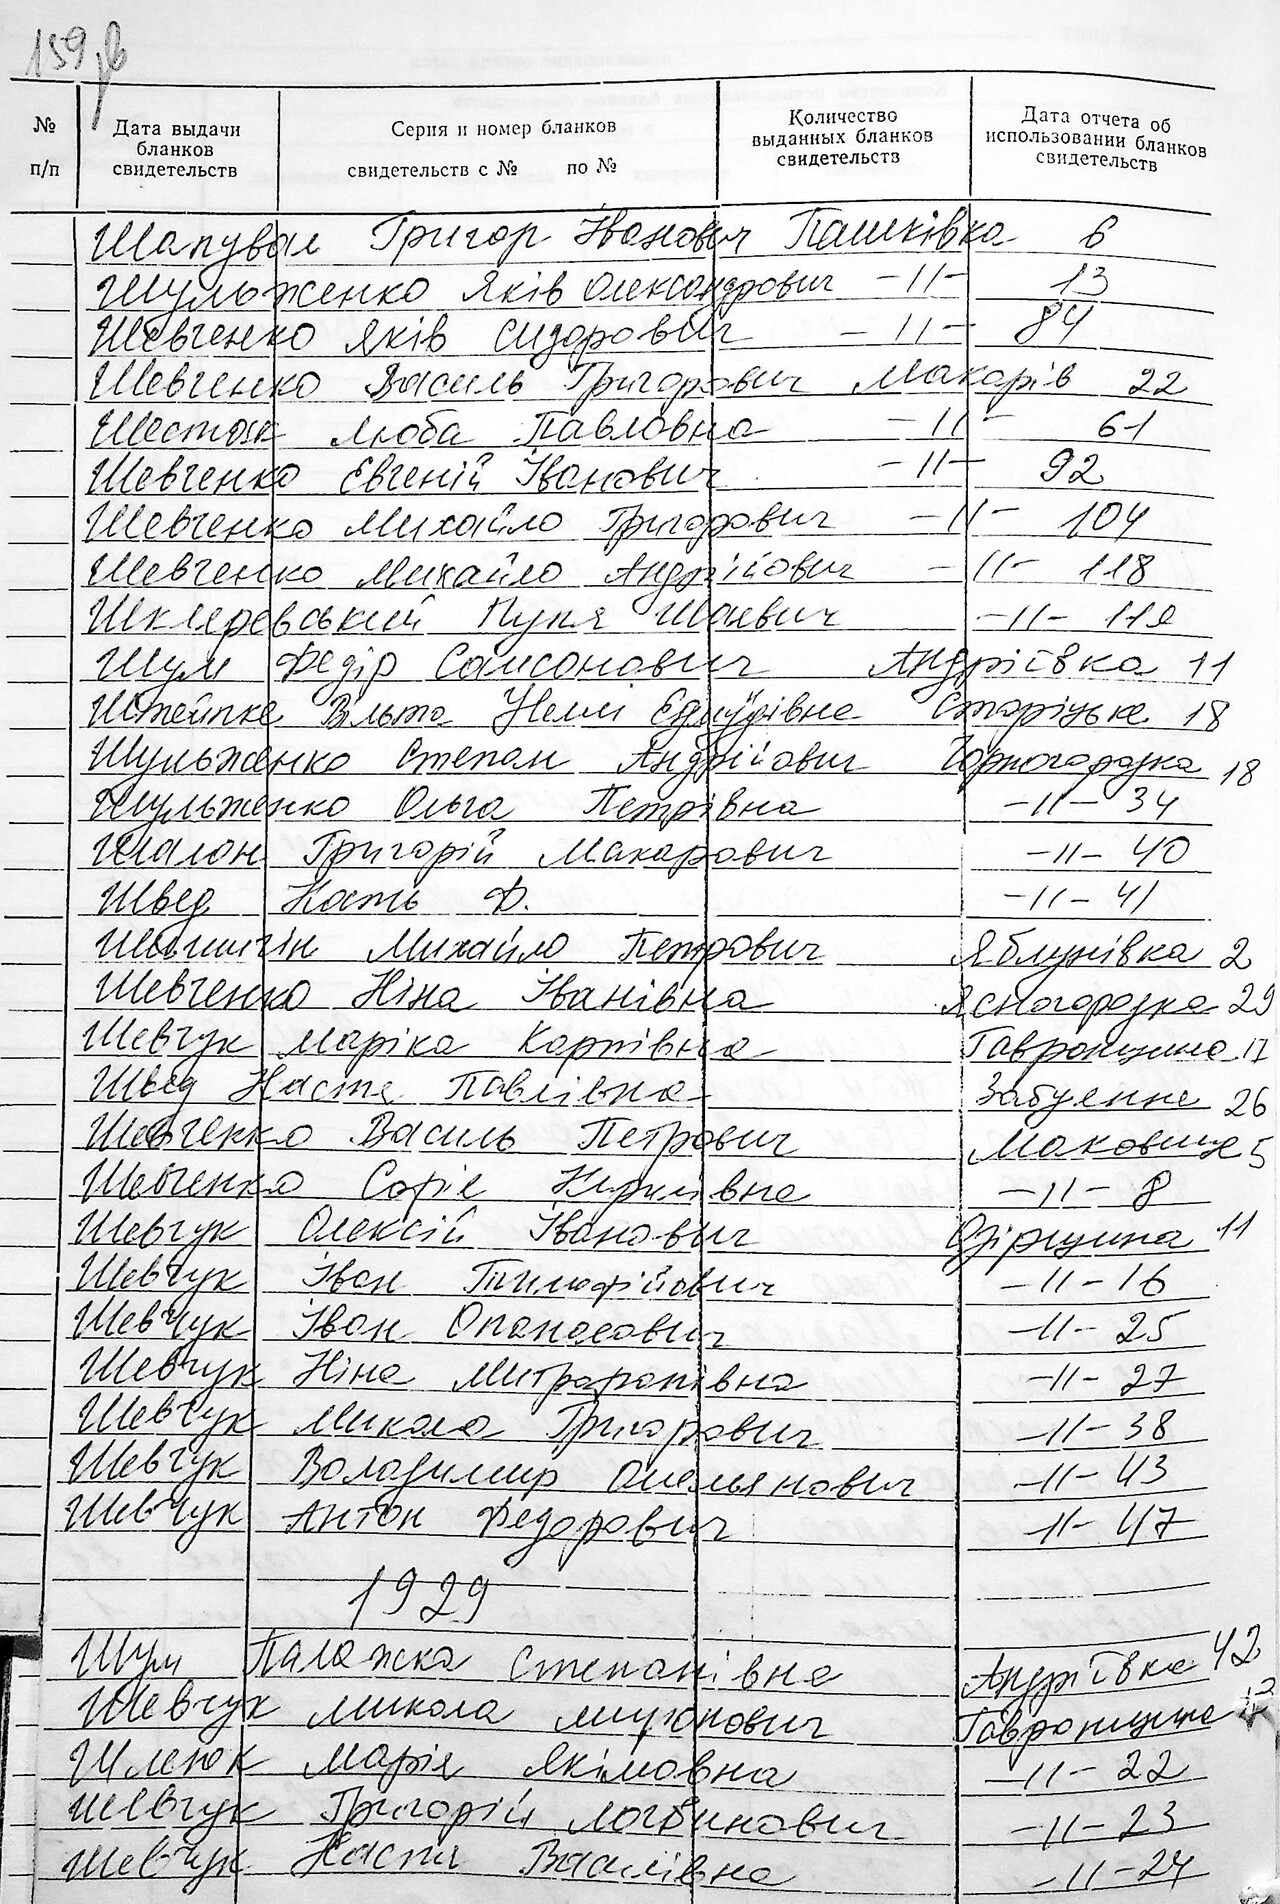 159 зв
№ п/п
Дата выдачи бланков свидетельств
Серия и номер бланков свидетельств с № по №
Количество выданных бланков свидетельств
Дата отчета об использовании бланков свидетельств
Шапувал Григор Іванович Пашківка 6
Шульженко Яків Олександрович -11- 13
Шевченко Яків Сидорович -11- 84
Шевченко Василь Григорович Макарів 22
Шестак Люба Павловна -11- 61
Шевченко Евгеній Іванович -11- 92
Шевченко Михайло Григорович -11- 104
Шевченко Михайло Андрійович -11- 118
Шкляревський -11-
Шум Федір Самсонович Андріївка 11
Штейпке Вільма Неллі Старіцьке 18
Шульженко Степан Андрійович Чорногородка 18
Шульженко Ольга Петрівна -11- 34
Шалон Григорій Макарович -11- 40
Швед Кать Ф. -11- 41
Михайло Петрович Яблунівка 2
Шевченко Ніна Іванівна Ясногородка 29
Шевчук Маріка Карпівна Гавронщина 17
Швед Настя Павлівна Забуяння 26
Шевченко Василь Петрович Маковище 5
Шевченко Софія Кирилівна -11- 8
Шевчук Олексій Іванович Озірщина 11
Шевчук Іван Тимофійович -11- 16
Шевчук Іван Опанасович -11- 25
Шевчук Ніна Митрофанівна -11- 27
Шевчук Микола Григорович -11- 38
Шевчук Володимир Омельянович -11- 43
Шевчук Антон Федорович -11- 47
1929
Шум Палажка Степанівна Андріївка 42
Шевчук Микола Миронович Гавронщина
Шлеюк Марія Якімовна -11- 22
Шевчук Григорій Логвинович -11- 23
Шевчук Настя Василівна -11- 24